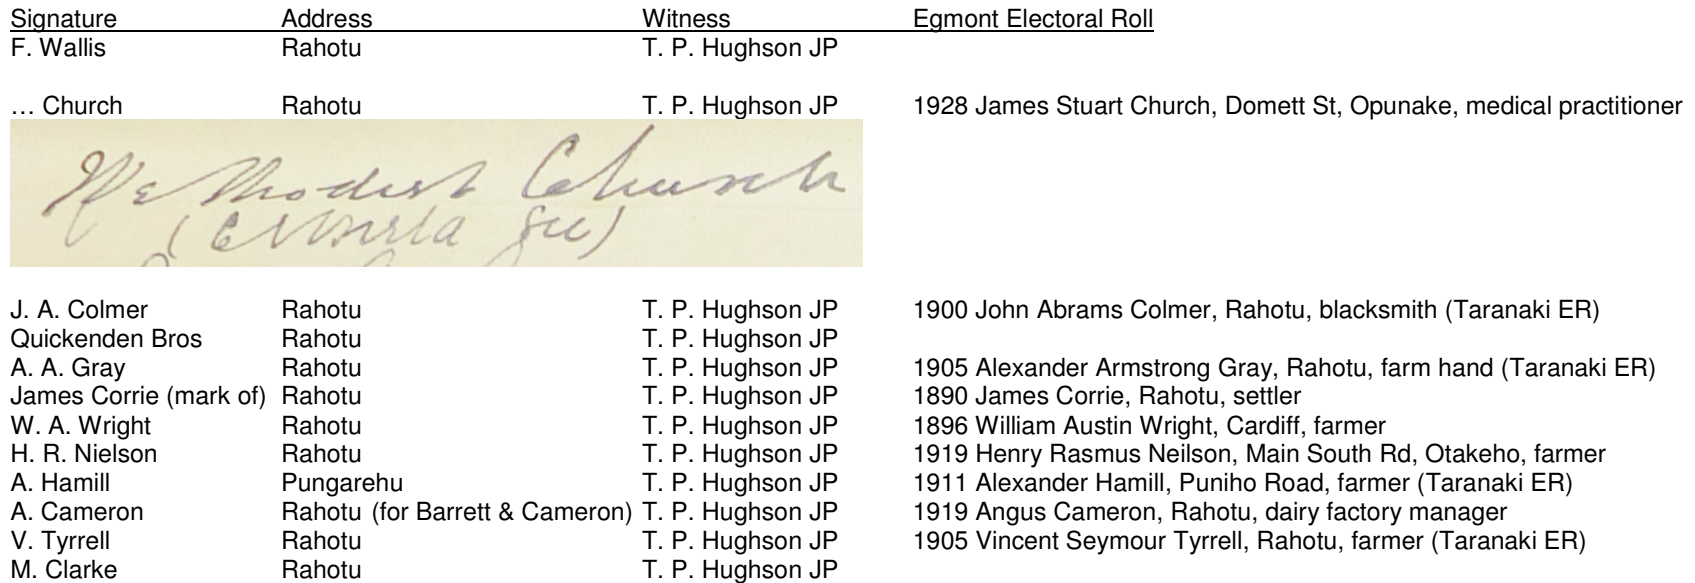 Signature Address Witness Egmont Electoral Roll
F. Wallis Rahotu T. P. Hughson JP
… Church Rahotu T. P. Hughson JP 1928 James Stuart Church, Domett St, Opunake, medical practitioner
Methodist Church
J. A. Colmer Rahotu T. P. Hughson JP 1900 John Abrams Colmer, Rahotu, blacksmith (Taranaki ER)
Quickenden Bros Rahotu T. P. Hughson JP
A. A. Gray Rahotu T. P. Hughson JP 1905 Alexander Armstrong Gray, Rahotu, farm hand (Taranaki ER)
James Corrie (mark of) Rahotu T. P. Hughson JP 1890 James Corrie, Rahotu, settler
W. A. Wright Rahotu T. P. Hughson JP 1896 William Austin Wright, Cardiff, farmer
H. R. Nielson Rahotu T. P. Hughson JP 1919 Henry Rasmus Neilson, Main South Rd, Otakeho, farmer
A. Hamill Pungarehu T. P. Hughson JP 1911 Alexander Hamill, Puniho Road, farmer (Taranaki ER)
A. Cameron Rahotu (for Barrett & Cameron) T. P. Hughson JP 1919 Angus Cameron, Rahotu, dairy factory manager
V. Tyrrell Rahotu T. P. Hughson JP 1905 Vincent Seymour Tyrrell, Rahotu, farmer (Taranaki ER)
M. Clarke Rahotu T. P. Hughson JP